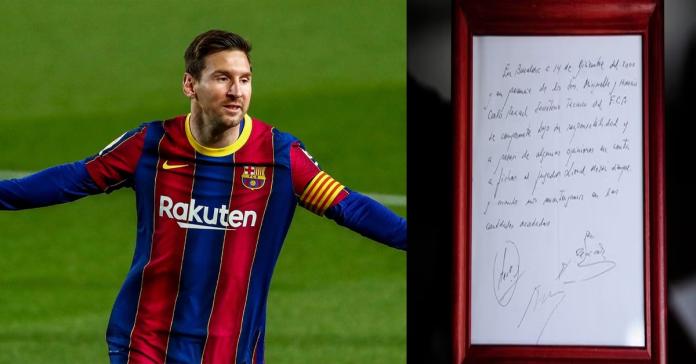 Rakuten
En Barcelona a 14 de diciembre del 2000
y en presencia de los Srs. Minguella y Horacio
Carlos Secretario Técnico del F.C.B
se compromete bajo su responsabilidad y
a pesar de algunas opiniones en contra
a fichar al jugador Lionel Messi
y cuando nos mantengamos en las
cantidades acordadas